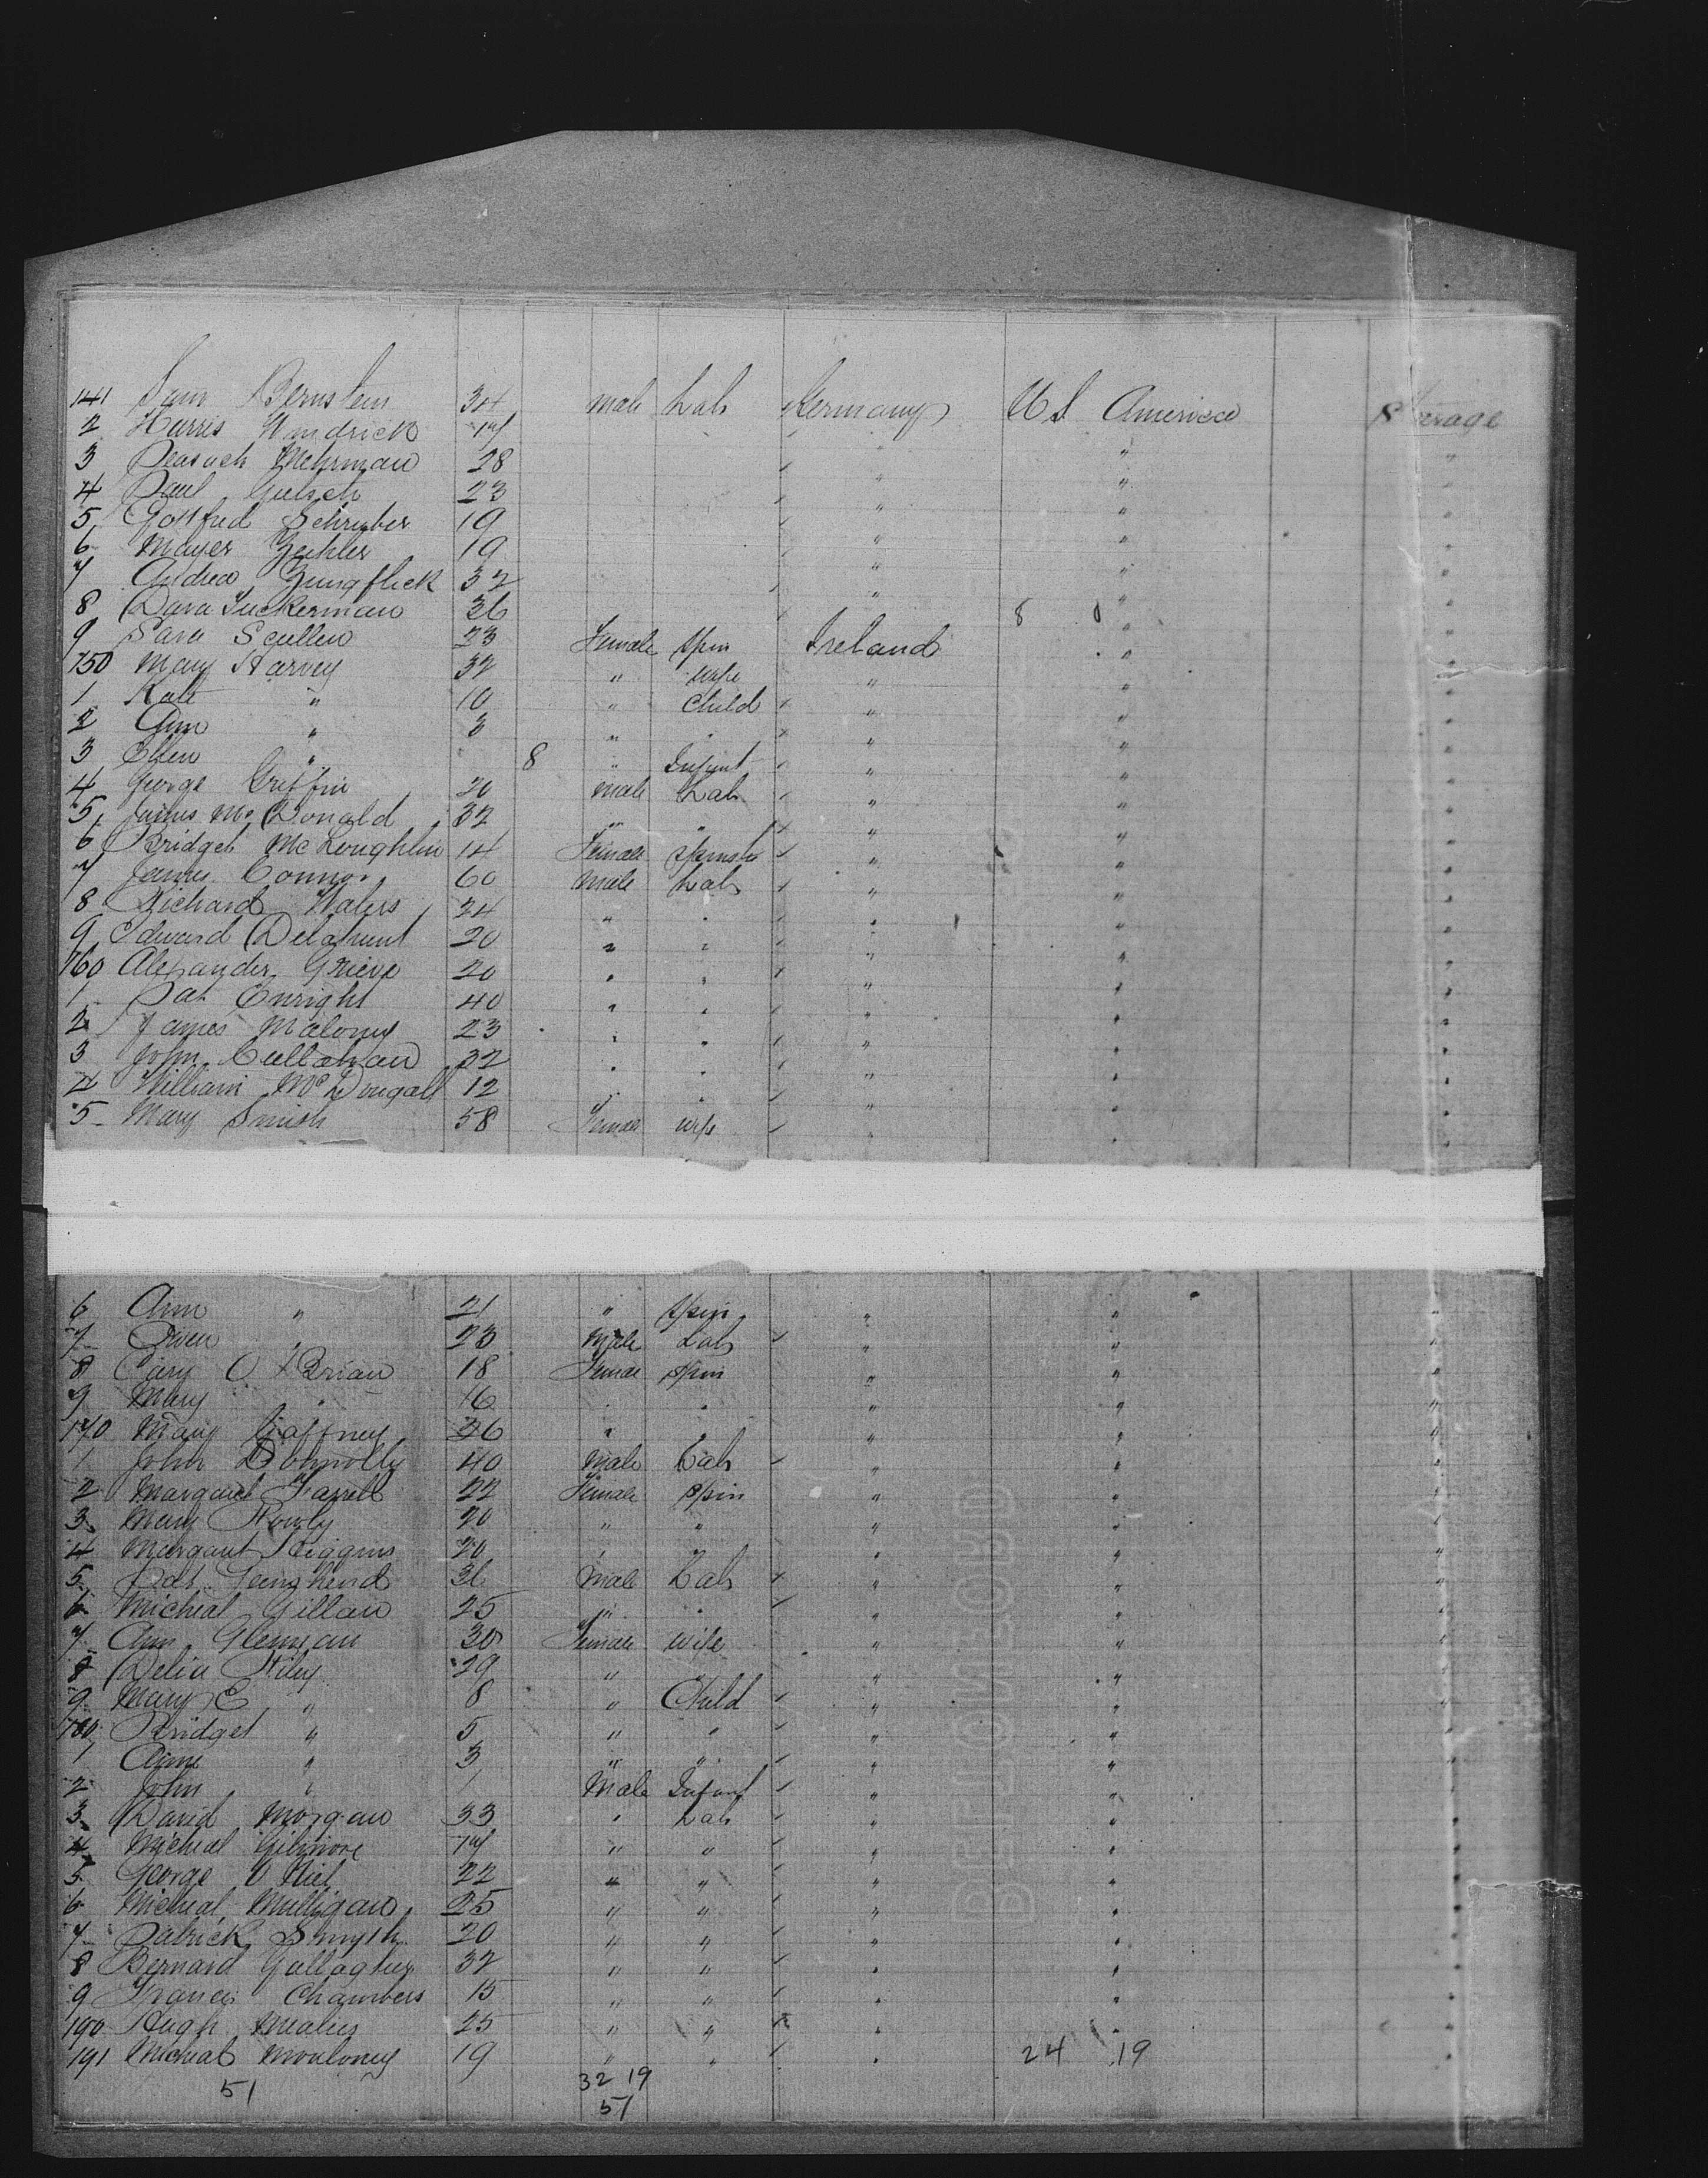 141 Sam Bernstein 34 male Lab Germany U S America Steerage
2 Harris Windrick 17 " "
3 Mehrman 28 " "
4 Paul 23 " "
5 Gottfried Schreiber 19 " "
6 Mayer 19 " "
7 Andrew Zungflick 32 " "
8 Dava Tuckerman 36 8 0 "
9 Sara Scullen 23 Female Spin Ireland "
150 Mary Harvey 32 " wife " "
1 Kate " 10 " Child " "
2 Ann " 3 " " " "
3 Ellen " 8 " Infant " "
4 George Griffin 20 male Lab " "
5 James McDonald 32 " " " "
6 Bridget McLoughlin 14 Female Spinster " "
7 James Connor 60 male Lab " "
8 Richard Waters 34 " " " "
9 Edward Delahunt 20 " " " "
160 Alexander Grieve 20 " " " "
1 Pat Enright 40 " " " "
2 James Malony 23 " " " "
3 John Cullahan 32 " " " "
4 William McDougall 12 " " " "
5 Mary Smith 58 Female wife " "
6 Ann " 21 " Spin " " "
7 Owen " 23 Male Lab " " "
8 O'Brian 18 Female Spin " " "
9 Mary " 16 " " " " "
170 Mary Gaffney 26 " " " " "
1 John Donnolly 40 male Lab " " "
2 Margaret Farrell 22 Female Spin " " "
3 Mary 20 " " " " "
4 Margaret Higgins 20 " " " " "
5 Pat 36 male Lab " " "
6 Micheal Gillan 25 " " " " "
7 Ann Glennan 30 Female wife " " "
8 Delia 29 " " " " "
9 Mary E " 8 " Child " " "
180 Bridget " 5 " " " " "
1 Anne " 3 " " " " "
2 John " 1 Male Infant " " "
3 David Morgan 33 " Lab " " "
4 Micheal Gilmore 17 " " " " "
5 George O Neil 22 " " " " "
6 Micheal Mulligan 25 " " " " "
7 Patrick Smyth 20 " " " " "
8 Bernard Gallagher 32 " " " " "
9 Francis Chambers 15 " " " " "
190 Hugh 25 " " " " "
191 Micheal Mouloney 19 " " " 24 19
51 32 19
51